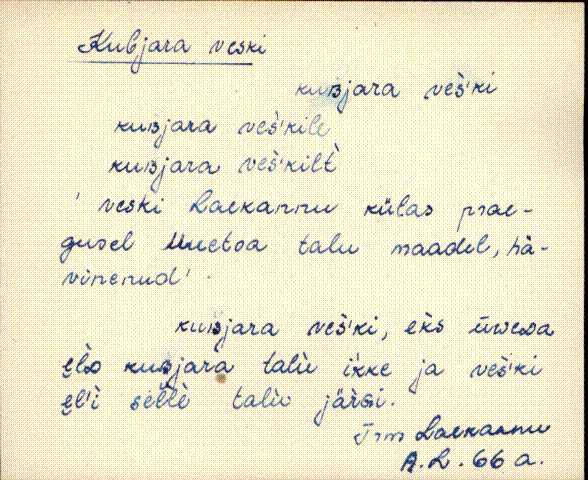 Kubjara veski
kuʙjara veš́ki
kuʙjara veš̀kile
kuʙjara veš̀kilt̀
' veski Laekannu külas prae-
gusel Uuetoa talu maadel, hä-
vinenud'.
kuʙjara veš́ki, eks
ęlᴅ kuʙjara talù ikke ja veš́ki
ęl'i sellè talù järǵi.
Trm Laekannu
A. L. 66 a.